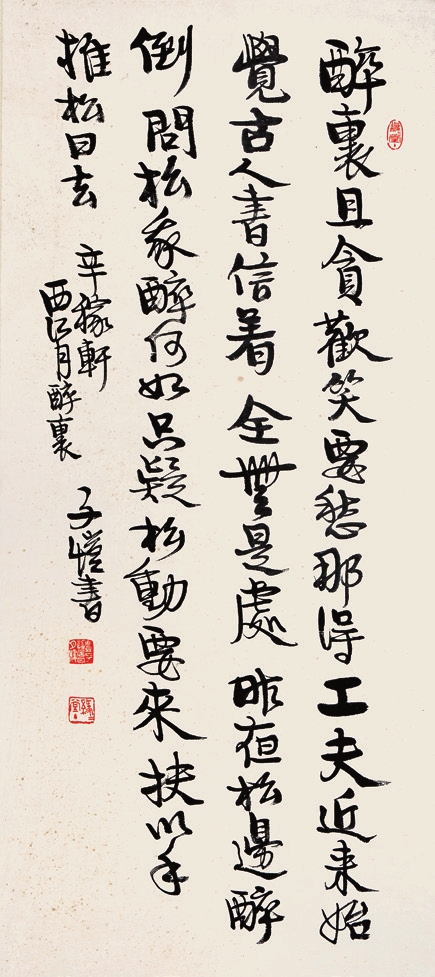 醉裏且貪歡笑要愁那得工夫近来始
覺古人書信着全無是處昨夜松邊醉
倒問松我醉何如只疑松動要來扶以手
推松曰去
辛稼軒
西江月醉裏
子愷書